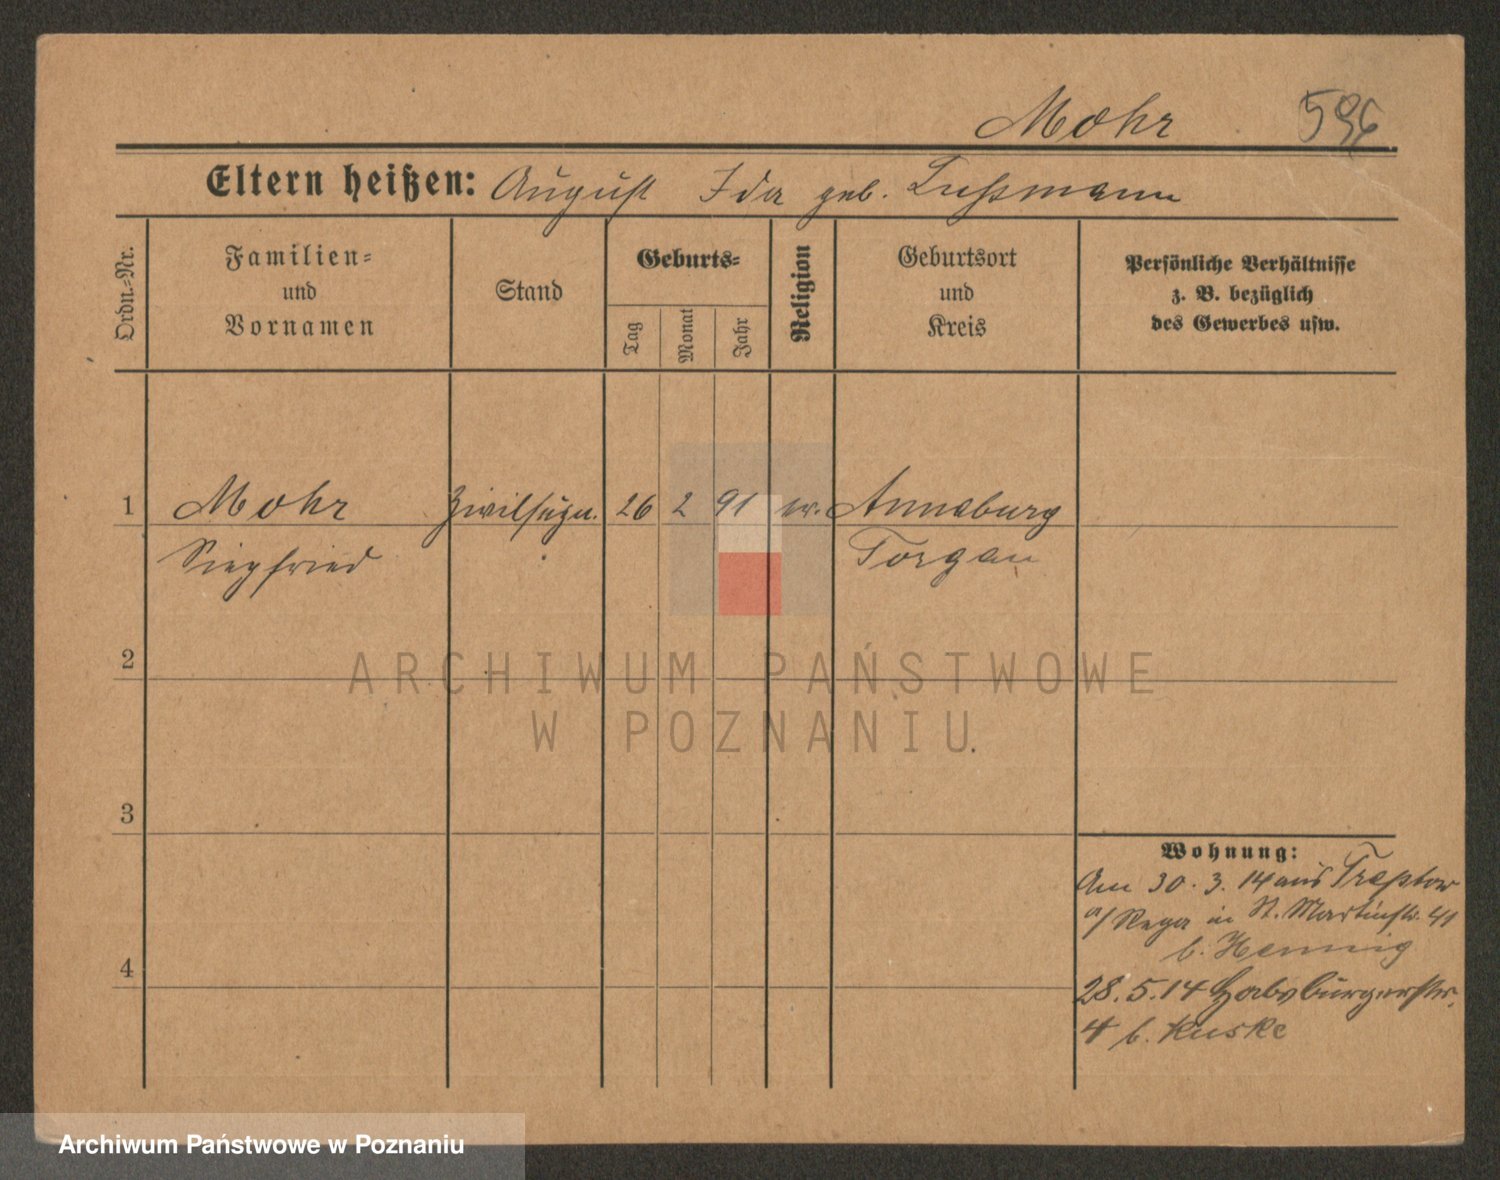 Mohr 596
Eltern heißen: August Ida geb. Lußmann
Ordn.-Nr.
Familien-
und
Vornamen
Stand
Geburts-
Tag
Monat
Jahr
Religion
Geburtsort
und
Kreis
Persönliche Verhältnisse
z. B. bezüglich
des Gewerbes usw.
1 Mohr 26 2 91 ev. Annaburg
Siegfried Torgau
2
3
4
Wohnung:
Am 30. 3. 14 aus Treptow
a/ Rega in St. Martinstr. 41
b. Hennig
28. 5. 14 Habsburgerstr.
4 b. Kuske
ARCHIWUM PAŃSTWOWE
W POZNANIU
Archiwum Państwowe w Poznaniu